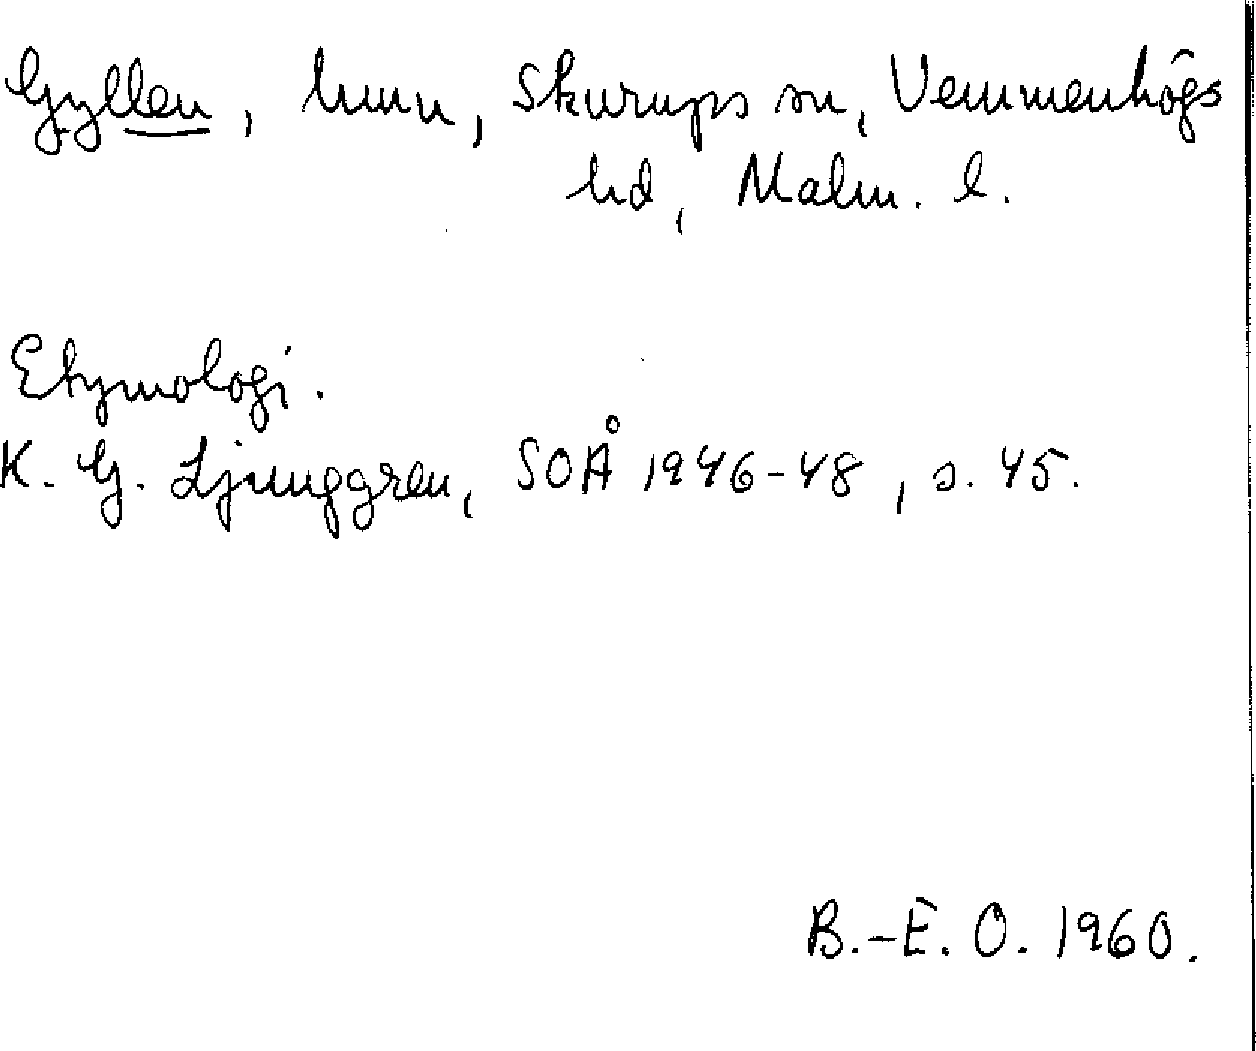 Gyllen, hmn, Skurups sn, Vemmenhögs
hd, Malm. l.
Etymologi.
K. G. Ljunggren, SOÅ 1946-48, s. 45.
B.-E. O. 1960.